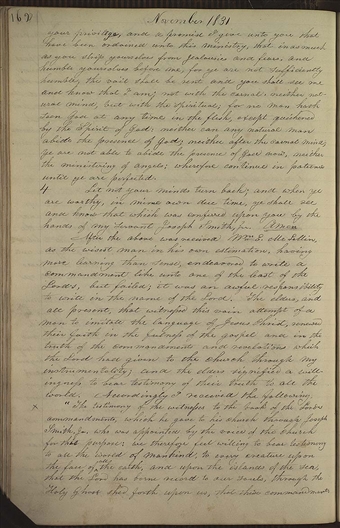 162 November 1831
your privilege, and a promise I give unto you that
have been ordained unto this ministry, that inasmuch
as you strip yourselves from jealousies and fears, and
humble yourselves before me, for ye are not sufficiently
humble, the vail shall be rent and you shall see me
and know that I am; not with the carnal: neither nat-
ural mind, but with the spiritual; for no man hath
seen God at any time in the flesh, except quickened
by the Spirit of God: neither can any natural man
abide the presence of God; neither after the carnal mind;
ye are not able to abide the presence of God now, neither
the ministering of angels; wherefore continue in patience
until ye are perfected.
4 Let not your minds turn back; and when ye
are worthy, in mine own due time, ye shall see
and know that which was confered upon you by the
hands of my servant Joseph Smith, jr. Amen
After the above was received Wm. E. McLellin,
as the wisest man in his own estimation, having
more learning than sense, endeavored to write a
commandment like unto one of the least of the
Lords, but failed; it was an awful responsibility
to write in the name of the Lord. The elders, and
all present, that witnessed this vain attempt of a
man to imitate the language of Jesus Christ, renewed
their faith in the fulness of the gospel and in the
truth of the commandments and revelations which
the Lord had given to the church through my
instrumentality; and the elders signified a will-
ingness to bear testimony of their truth to all the
world. Accordingly I received the following:
x "The testimony of the witnesses to the book of the Lord's
commandments, which he gave to his church through Joseph
Smith, jr. who was appointed by the voice of the church
for this purpose; we therefore feel willing to bear testimony
to all the world of mankind; to every creature upon
the face of the earth, and upon the islands of the sea;
that the Lord has borne record to our souls, through the
Holy Ghost shed forth upon us, that these commandments